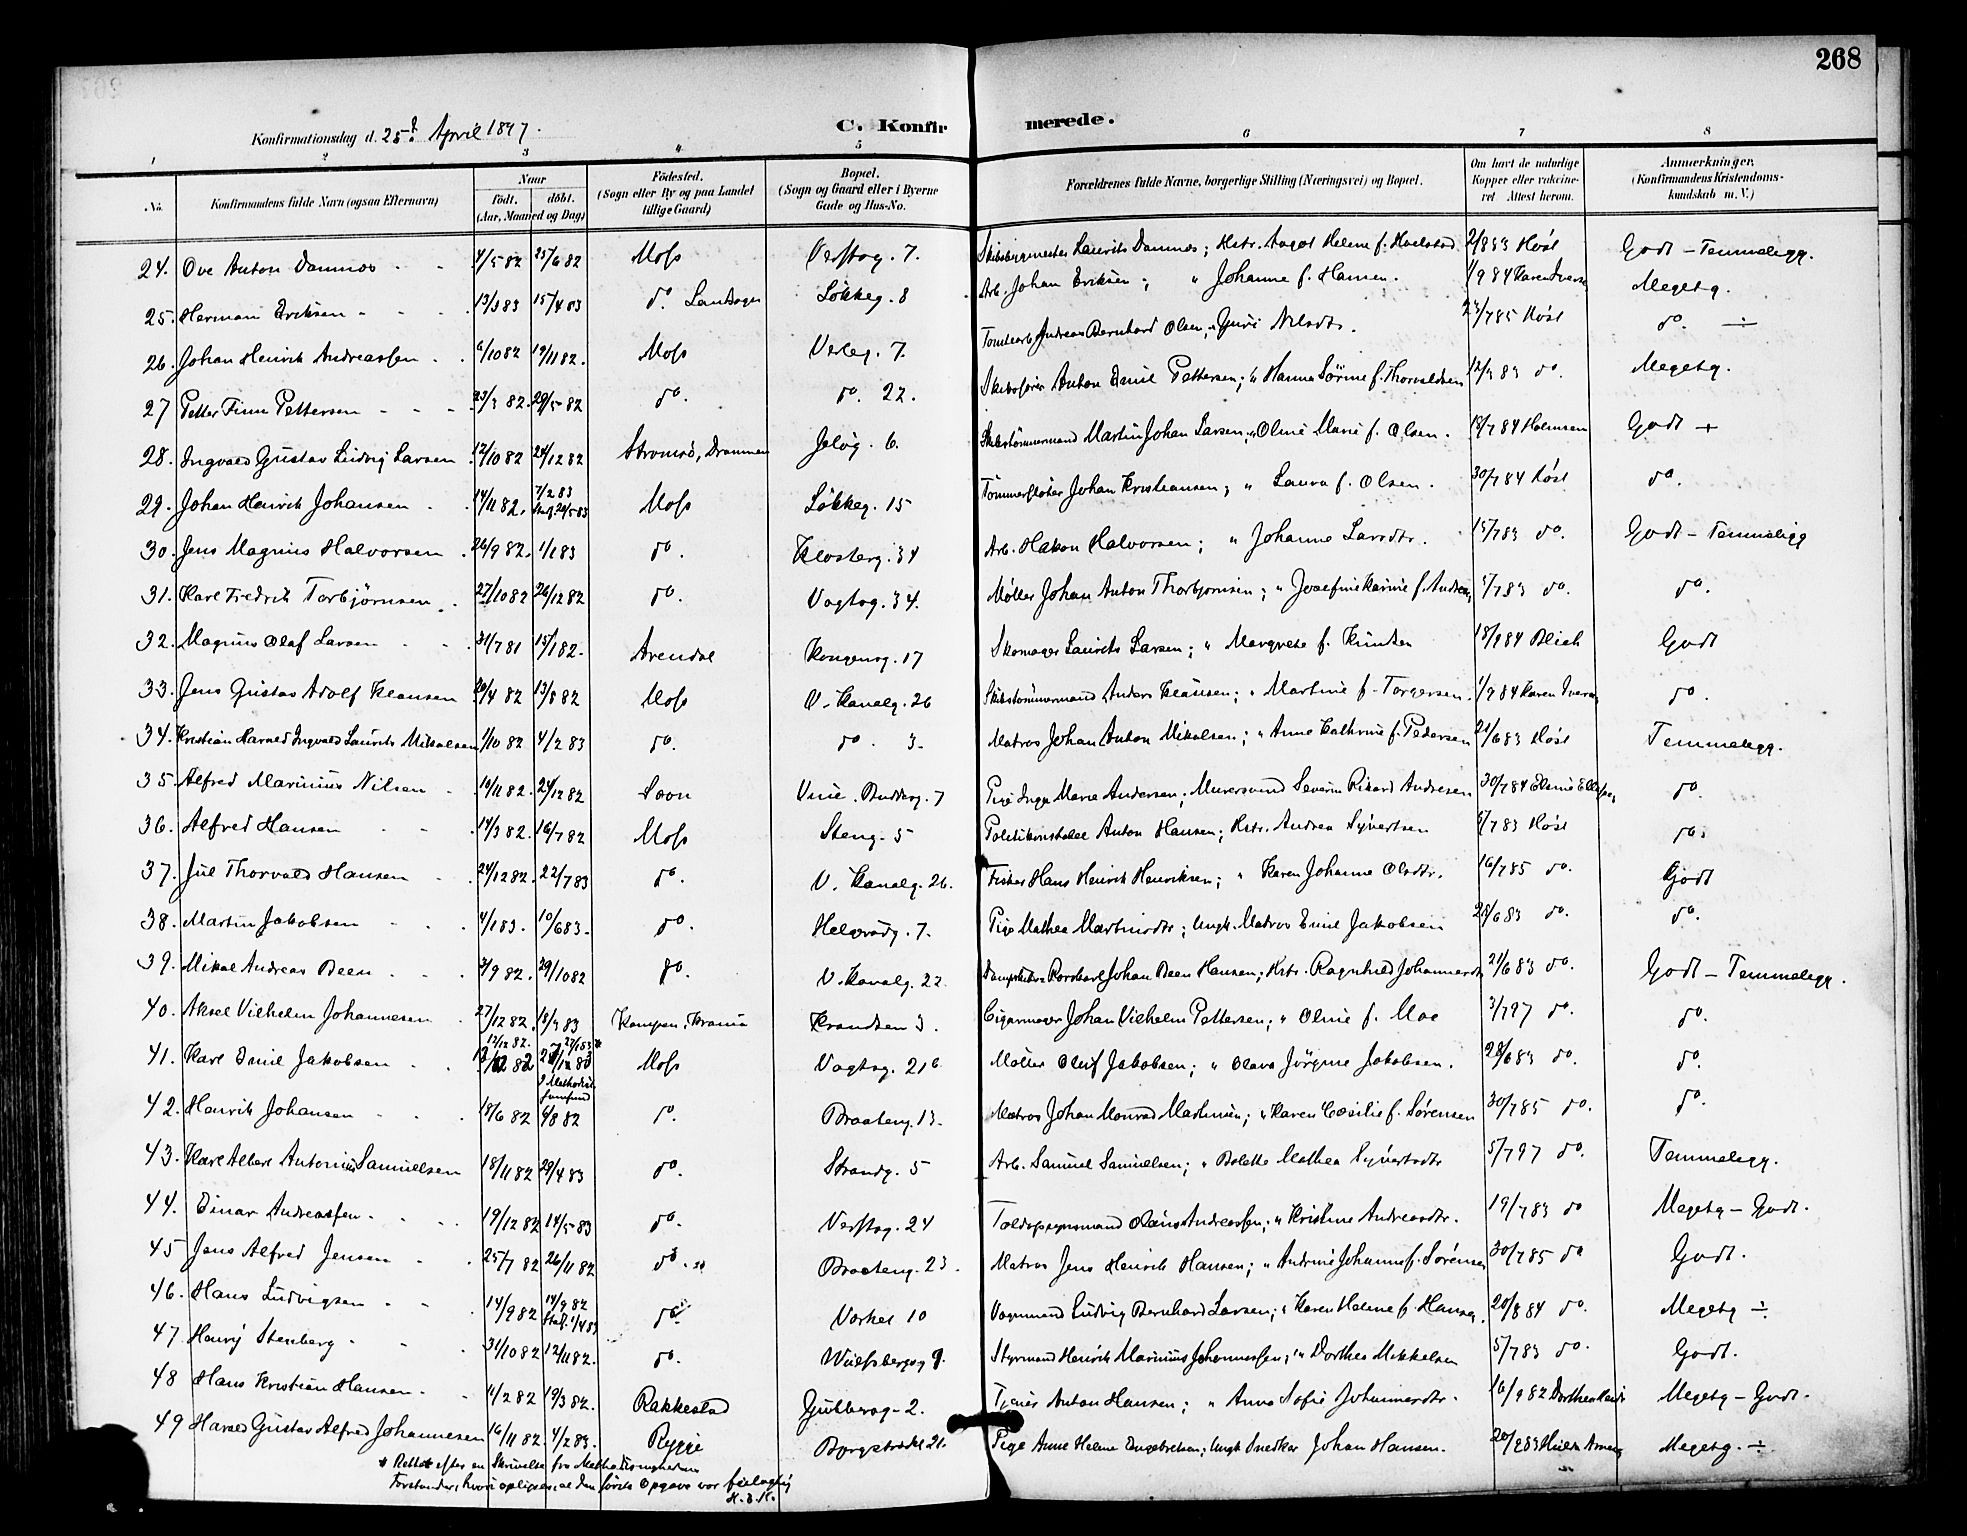 268
Konfirmationsdag d. 25de April 1897.
C. Konfirmerede.
1 2 3 4 5 6 7 8
No. Konfirmandens fulde Navn (ogsaa Efternavn) Naar født. døbt. (Aar, Maaned og Dag) Fødested. (Sogn eller By og paa Landet tillige Gaard) Bopæl. (Sogn og Gaard eller i Byerne Gade og Hus-No. Forældrenes fulde Navne, borgerlige Stilling (Næringsvei) og Bopæl. Om havt de naturlige Kopper eller vakcineret Attest herom. Anmærkninger. (Konfirmandens Kristendomskundskab m. V.)
24. Ove Anton Damnæs 4/5 82 25/6 82 Moss Verftsg. 7. Skibsbygmester Laurits Damnæs; Hstr. Aagot Helene f. 2/8 83 Høst Godt – Temmeligg.
25. Herman Eriksen 13/3 83 15/4 83 do. Landsogn Løkkeg. 8 Arb. Johan Eriksen; " Johanne f. Hansen. 1/9 84 Karen Iversen Megetg.
26. Johan Henrik Andreassen 6/10 82 19/11 82. Moss Verleg. 7. Tomtearb. Andreas Bernhard Olsen, " Guri Nilsdtr. 23/7 85 Høst do. ÷
27 Petter Finn Pettersen 23/3 82. 29/5 82 do. do. 22. Skibsfører Anton Emil Pettersen; " Hanna Sørine f. Thorvaldsen 12/9 83 do. Megetg.
28. Ingvald Gustav Ludvig Larsen 12/10 82 24/12 82 Strømsø, Drammen Jeløg. 6. Skibstømmermand Martin Johan Larsen; " Oline Marie f. Olsen. 18/7 84 Holmsen Godt +
29. Johan Henrik Johansen 14/11 82. 7/2 83 Stadf. 20/5 83 Moss Løkkeg. 15 Tømmerfløter Johan Kristiansen; " Laura f. Olsen. 30/7 84 Høst do.
30. Jens Magnus Halvorsen 26/9 82. 1/1 83 do. Klosterg. 34 Arb. Hakon Halvorsen; " Johanne Larsdtr. 15/7 83 do. Godt – Temmeligg
31. Karl Fredrik Torbjørnsen 27/10 82 26/12 82 do. Vogtsg. 34. Møller Johan Anton Thorbjørnsen; " Josefine Karine f. 5/7 83 do. do.
32. Magnus Olaf Larsen 31/7 81 15/1 82. Arendal Kongensg. 17 Skomager Laurits Larsen; " Margrete f. Knudsen 18/9 84 Blich Godt
33. Jens Gustav Adolf Klausen 20/4 82 13/8 82 Moss V. Kanalg. 26 Skibstømmermand Anders Klausen; " Martine f. Torgersen. 1/9 84 Karen Iversen do.
34. Kristian Harald Ingvald Laurits Mikalsen 1/10 82 4/2 83 do. do. 3. Matros Johan Anton Mikalsen; " Anne Kathrine f. Pedersen 21/6 83 Høst Temmeligg.
35. Alfred Marinius Nilsen 10/11 82. 24/12 82 Soon Pige Inga Marie Andersen; Murersvend Severin Rikard Andresen 30/7 84 do.
36. Alfred Hansen 14/3 82. 16/7 82 Moss Steng. 5 Politikonstabel Anton Hansen; Hstr. Andrea Syvertsen 5/7 83 Høst do.
37. Jul Thorvald Hansen 24/12 82. 22/7 83 do. V. Kanalg. 26. Fisker Hans Henrik Henriksen; " Karen Johanne Olsdtr. 16/7 85 do. Godt
38. Martin Jakobsen 4/1 83. 10/6 83. do. Helgerødg. 7. Pige Mathea Martinsdtr; Ungk. Matros Emil Jakobsen 28/6 83 do. do.
39. Mikal Andreas Been 3/9 82. 29/10 82 do. V. Kanalg. 22. Rorskarl Johan Been Hansen; Hstr. Ragnhild Johannesdtr 21/6 83 do. Godt – Temmeligg.
40. Aksel Vilhelm Johannesen 27/12 82. 18/3 83 Kampen, Krania Krandsen 3. Cigarmager Johan Vilhelm Pettersen; " Oline f. Moe 3/7 97 do. do.
41. Karl Emil Jakobsen 12/12 82. 27/1 83 * I Methodist Samfund Moss Vogtsg. 21b Møller Oluf Jakobsen; " Olava Jørgine Jakobsen. 28/6 83 do. do.
42. Henrik Johansen 18/6 82 6/8 82 do. Braateng. 13. Matros Johan Monrad Mathisen; " Karen Cecilie f. Sørensen 30/7 85 do. do.
43. Karl Albert Antonius Samuelsen 18/11 82 29/4 83 do. Strandg. 5 Arb. Samuel Samuelsen; " Bolette Mathea Syvertsdtr 5/7 97 do. Temmeligg.
44. Einar Andreassen 19/12 82 14/5 83 do. Verftsg. 24 Toldopsynsmand Andreassen; " Kristine Andreasdtr. 19/7 83 do Megetg – Godt.
45 Jens Alfred Jensen 25/7 82 26/11 82 do. Braateng. 23. Matros Jens Henrik Hansen; " Andrine Johanne f. Sørensen 30/7 85 do Godt.
46. Hans Ludvigsen 14/9 82 14/9 82 Stadf. 1/4 83 do. Værket 10 Vognmand Ludvig Bernhard Larsen; " Karen Helene f. Hansen. 20/8 84 do. Megetg ÷
47. Henrij Stenberg 31/10 82 12/11 82. do. Wulfsbergsg 9. Styrmand Henrik Marinius Johannessen; " Dorthea Mikkelsen 5/7 83 do. Godt.
48 Hans Kristian Hansen 11/2 82 19/3 82. Rakkestad Gubberog. 2. Tjener Anton Hansen; " Anna Sofie Johannesdtr. 16/9 82 Megetg – Godt.
49 Harald Gustav Alfred Johannesen 16/11 82. 4/2 83. Rygge Borgstrædet 21. Pige Anne Helene Engebretsen; Ungk Snedker Johan Hansen. 20/9 83 Megetg. ÷
* Rettet efter en Skrivelse fra Methodistmenighedens
Forstander, hvori oplyses, at den første Opgave var feilagtig
H. B. K.